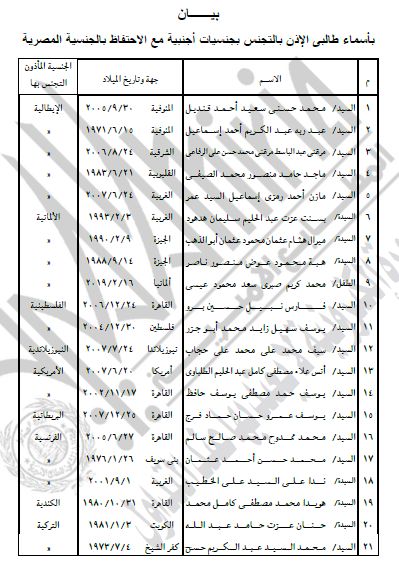 بيـــــان
بأسماء طالبى الإذن بالتجنس بجنسيات أجنبية مع الاحتفاظ بالجنسية المصرية
م الاســـم جهة وتاريخ الميلاد الجنسية المأذون التجنس بها
١ السيد/ محمد حسنى سعيد أحمد قنديل المنوفية ٢٠٠٥/٩/٣٠ الإيطالية
٢ السيد/ عبد ربه عبد الكريم أحمد إسماعيل المنوفية ١٩٧١/٦/١٥ »
٣ السيد/ مرقنى عبد الباسط مرقنى محمد حسن على الرفاعى الشرقية ٢٠٠٦/٨/٢٤ »
٤ السيد/ ماجد حامد منصور محمد الصيفى القليوبية ١٩٨٣/٦/٢١ »
٥ السيد/ مازن أحمد رمزى إسماعيل السيد عمر الغربية ٢٠٠٧/٦/٢٤ »
٦ السيدة/ بسنت عزت عبد الحليم سليمان هدهود الغربية ١٩٩٣/٢/٣ الألمانية
٧ السيدة/ ميرال هشام عثمان محمود عثمان أبو الذهب الجيزة ١٩٩٠/٢/٩ »
٨ السيدة/ هبة محمود عوض منصور ناصر الجيزة ١٩٨٨/٩/١٤ »
٩ الطفل/ محمد كريم صبرى سعد محمود عيسى ألمانيا ٢٠١٩/٢/١٦ »
١٠ السيد/ فارس نبيل حسين برو القاهرة ٢٠٠٦/١٢/٢٤ الفلسطينية
١١ السيد/ يوسف سهيل زايد محمد أبو جزر فلسطين ٢٠٠٤/١٢/٣٠ »
١٢ السيد/ سيف محمد على محمد على حجاب نيوزيلاندا ٢٠٠٧/٧/٢٤ النيوزيلاندية
١٣ السيد/ أنس علاء مصطفى كامل عبد الحليم الطلباوى أمريكا ٢٠٠٧/٦/٢٠ الأمريكية
١٤ السيد/ يوسف حمد مصطفى يوسف حافظ القاهرة ٢٠٠٢/١١/١٧ »
١٥ السيد/ يوسف عمرو حسان حماد فرج القاهرة ٢٠٠٧/١٢/٢٥ البريطانية
١٦ السيد/ محمد ممدوح محمد صالح سالم القاهرة ٢٠٠٥/٦/٢٧ الفرنسية
١٧ السيد/ محمد حسن أحمد عثمان بنى سويف ١٩٧٦/١/٢٦ »
١٨ السيدة/ ندا على السيد على الخطيب الغربية ٢٠٠١/٩/١ »
١٩ السيدة/ هويدا محمد مصطفى كامل محمد القاهرة ١٩٨٠/١٠/٣١ الكندية
٢٠ السيدة/ حنان عزت حامد عبد الله الكويت ١٩٨١/١/٣ التركية
٢١ السيد/ محمد السيد عبد الكريم حسن كفر الشيخ ١٩٧٣/٧/٤ »